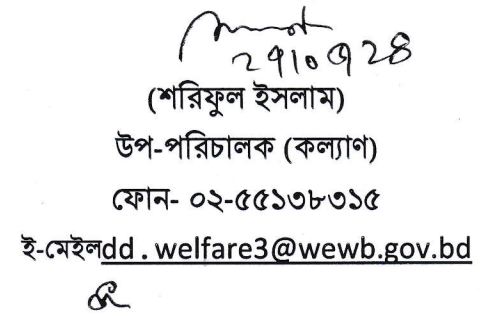 (শরিফুল ইসলাম)
উপ-পরিচালক (কল্যাণ)
ফোন- ০২-৫৫১৩৮৩১৫
ই-মেইলdd . welfare3@wewb.gov.bd